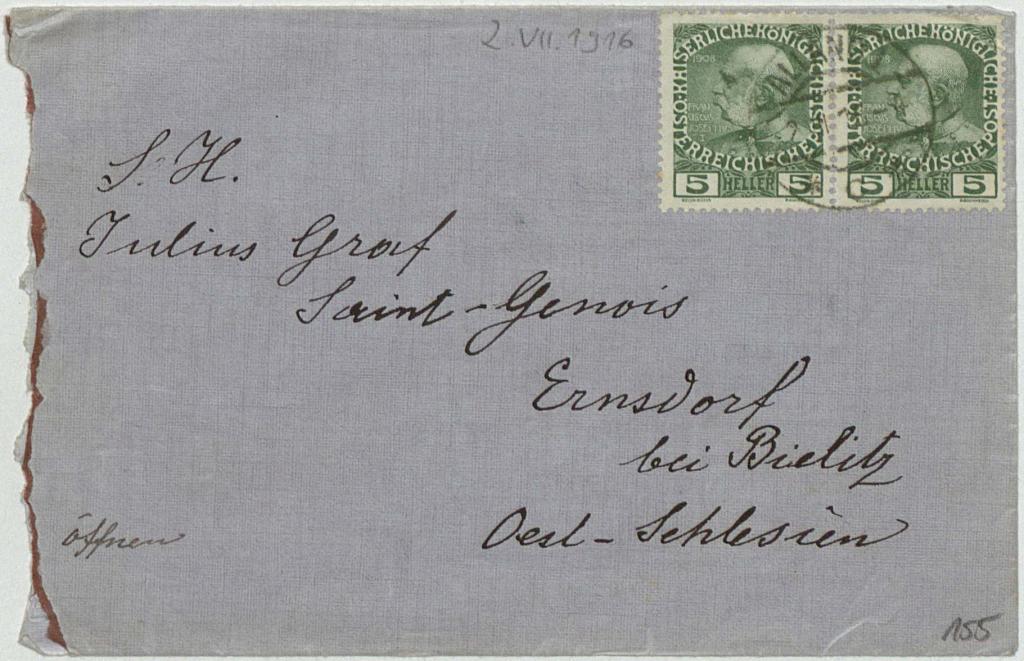 2. VII. 1916
KAISERLICHE KÖNIGLICHE ÖSTERREICHISCHE POST
1908
FRAN
CISCUS
JOSEPH I
5 HELLER 5
KAISERLICHE KÖNIGLICHE ÖSTERREICHISCHE POST
1908
FRAN
CISCUS
JOSEPH I
5 HELLER 5
S. H.
Julius Graf
Saint-Genois
Ernsdorf
bei Bielitz
Oest-Schlesien
öffnen
155